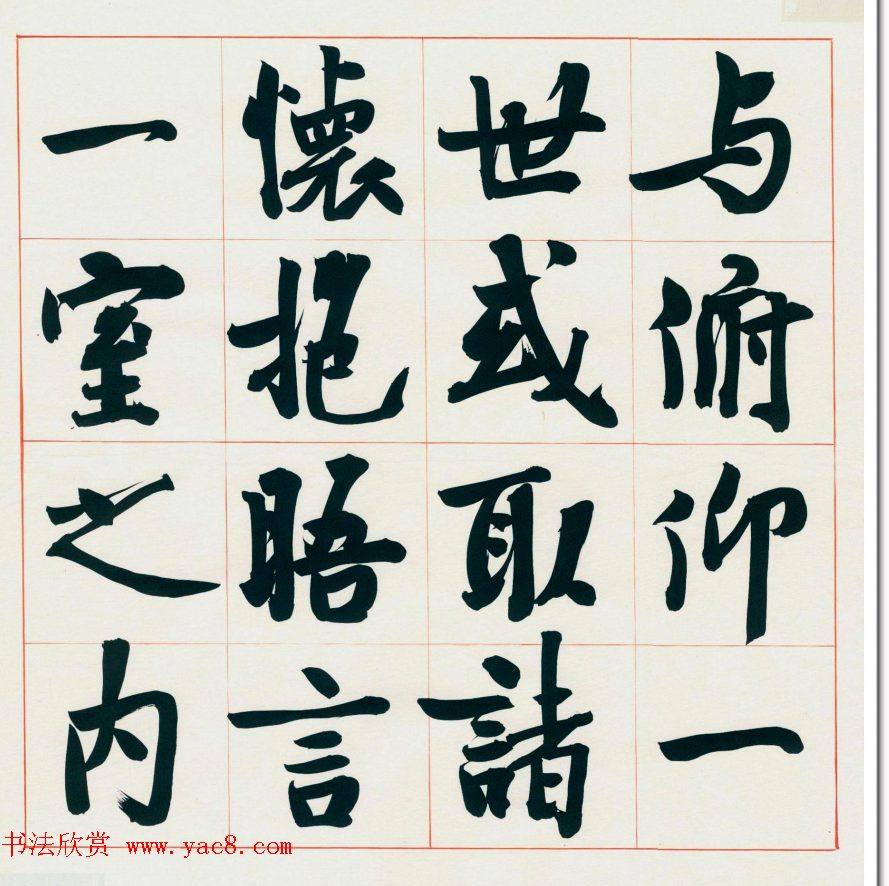 与俯仰一
世或取諸
懐抱晤言
一室之内
书法欣赏 www.yac8.com